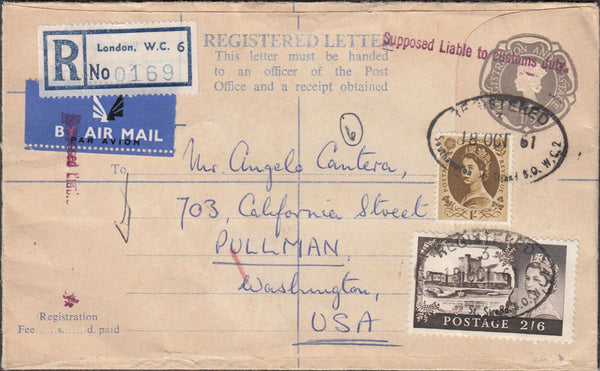 London, W.C. 6
R No 0169
REGISTERED LETTER
This letter must be handed
to an officer of the Post
Office and a receipt obtained
Supposed Liable to customs duty.
BY AIR MAIL
PAR AVION
Liable
6
REGISTERED
18 OCT 61
S.O. W.C.2
To
Mr. Angelo Cantera,
703, California Street
PULLMAN,
Washington,
USA
POSTAGE
1/-
REGISTERED
18 OCT
POSTAGE 2/6
Registration
Fee.....s.......d. paid